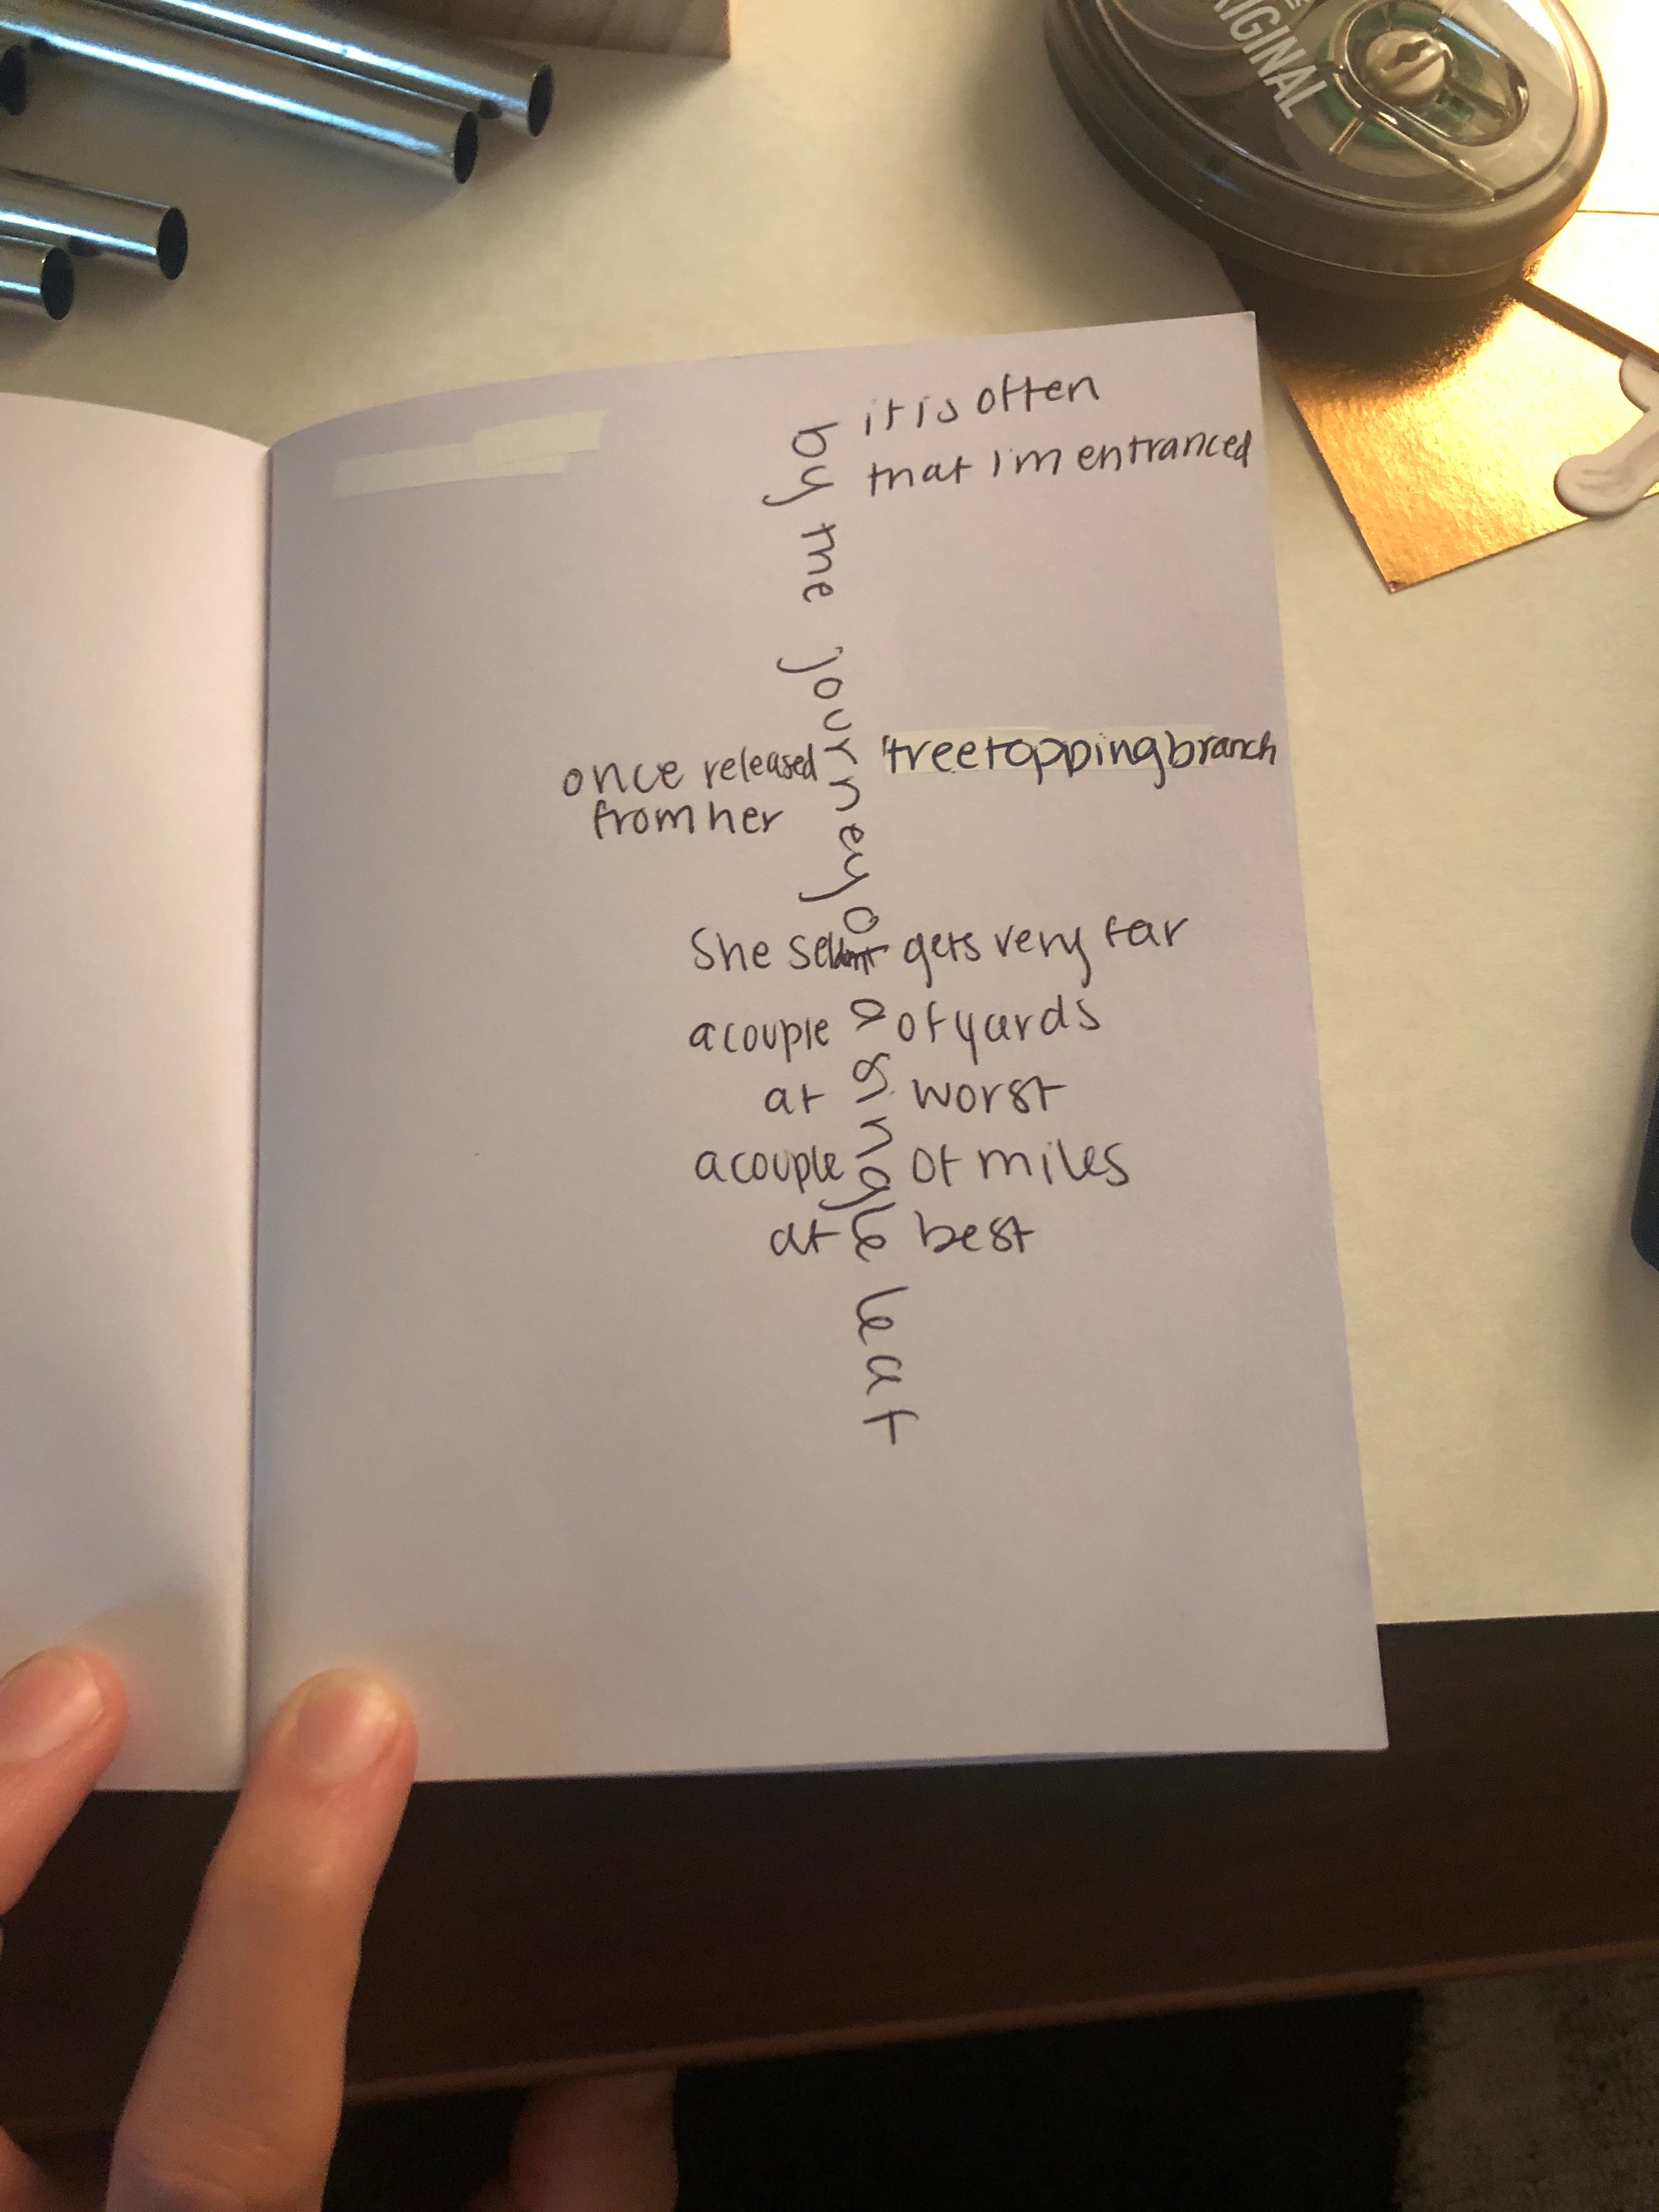 RIGINAL
it is often
that I'm entranced
by the journey of a single leaf
once released
from her
treetopping branch
She seldom gets very far
a couple of yards
at worst
a couple of miles
at best